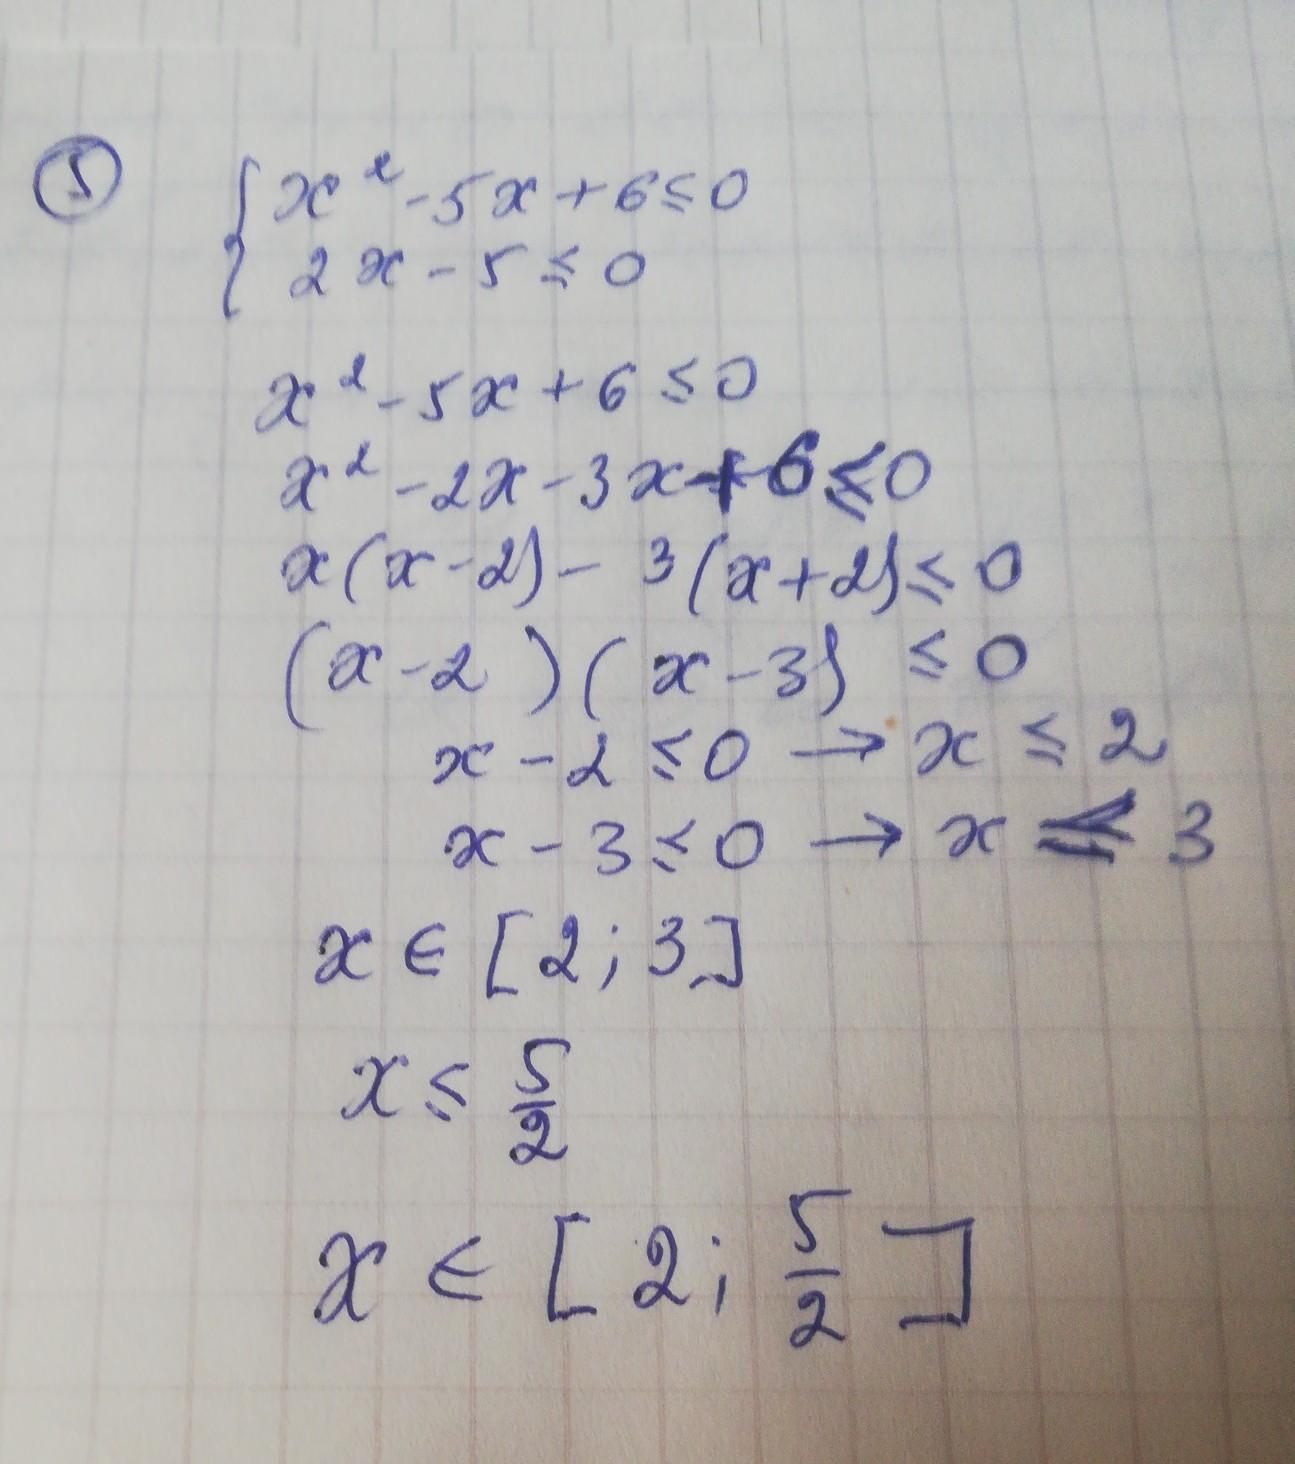 5
{ x² - 5x + 6 ≤ 0
2x - 5 ≤ 0
x² - 5x + 6 ≤ 0
x² - 2x - 3x + 6 ≤ 0
x(x - 2) - 3(x + 2) ≤ 0
(x - 2)(x - 3) ≤ 0
x - 2 ≤ 0 → x ≤ 2
x - 3 ≤ 0 → x ≤ 3
x ∈ [2; 3]
x ≤ 5/2
x ∈ [2; 5/2]